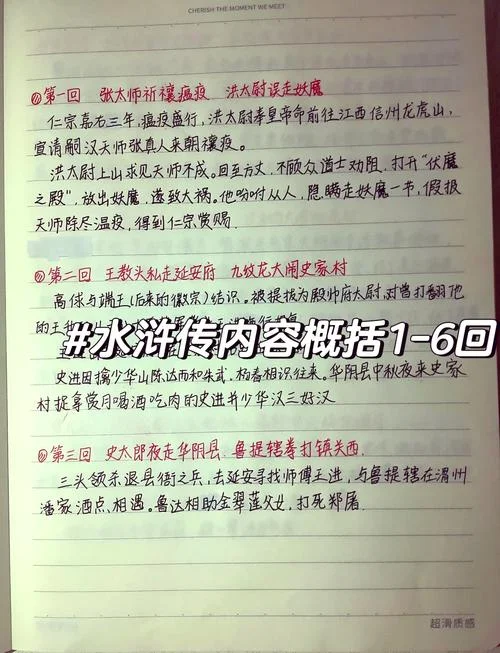 CHERISH THE MOMENT WE MEET
第一回 张太师祈禳瘟疫 洪太尉误走妖魔
仁宗嘉右三年,瘟疫盛行,洪太尉奉皇帝命前往江西信州龙虎山,
宣请嗣汉天师张真人来朝禳疫。
洪太尉上山求见天师不成。回至方丈,不顾众道士劝阻,打开“伏魔
之殿”,放出妖魔,遂致大祸。他吩咐从人,隐瞒走妖魔一节,假报
天师除尽温疫,得到仁宗赏赐.
第二回 王教头私走延安府 九纹龙大闹史家村
高俅与端王(后来的徽宗)结识。被提拔为殿帅府太尉,对曾打翻他
的王
#水浒传内容概括1-6回
史进因擒少华山陈达而和朱武.杨春相识往来。华阴县中秋夜来史家
村捉拿赏月喝酒吃肉的史进并少华汉三好汉
第三回 史太郎夜走华阴县.鲁提辖拳打镇关西.
三头领杀退县衙之兵,去延安寻找师傅王进,与鲁提辖在渭州
潘家酒点.相遇。鲁达相助金翠莲父女,打死郑屠.
超滑质感